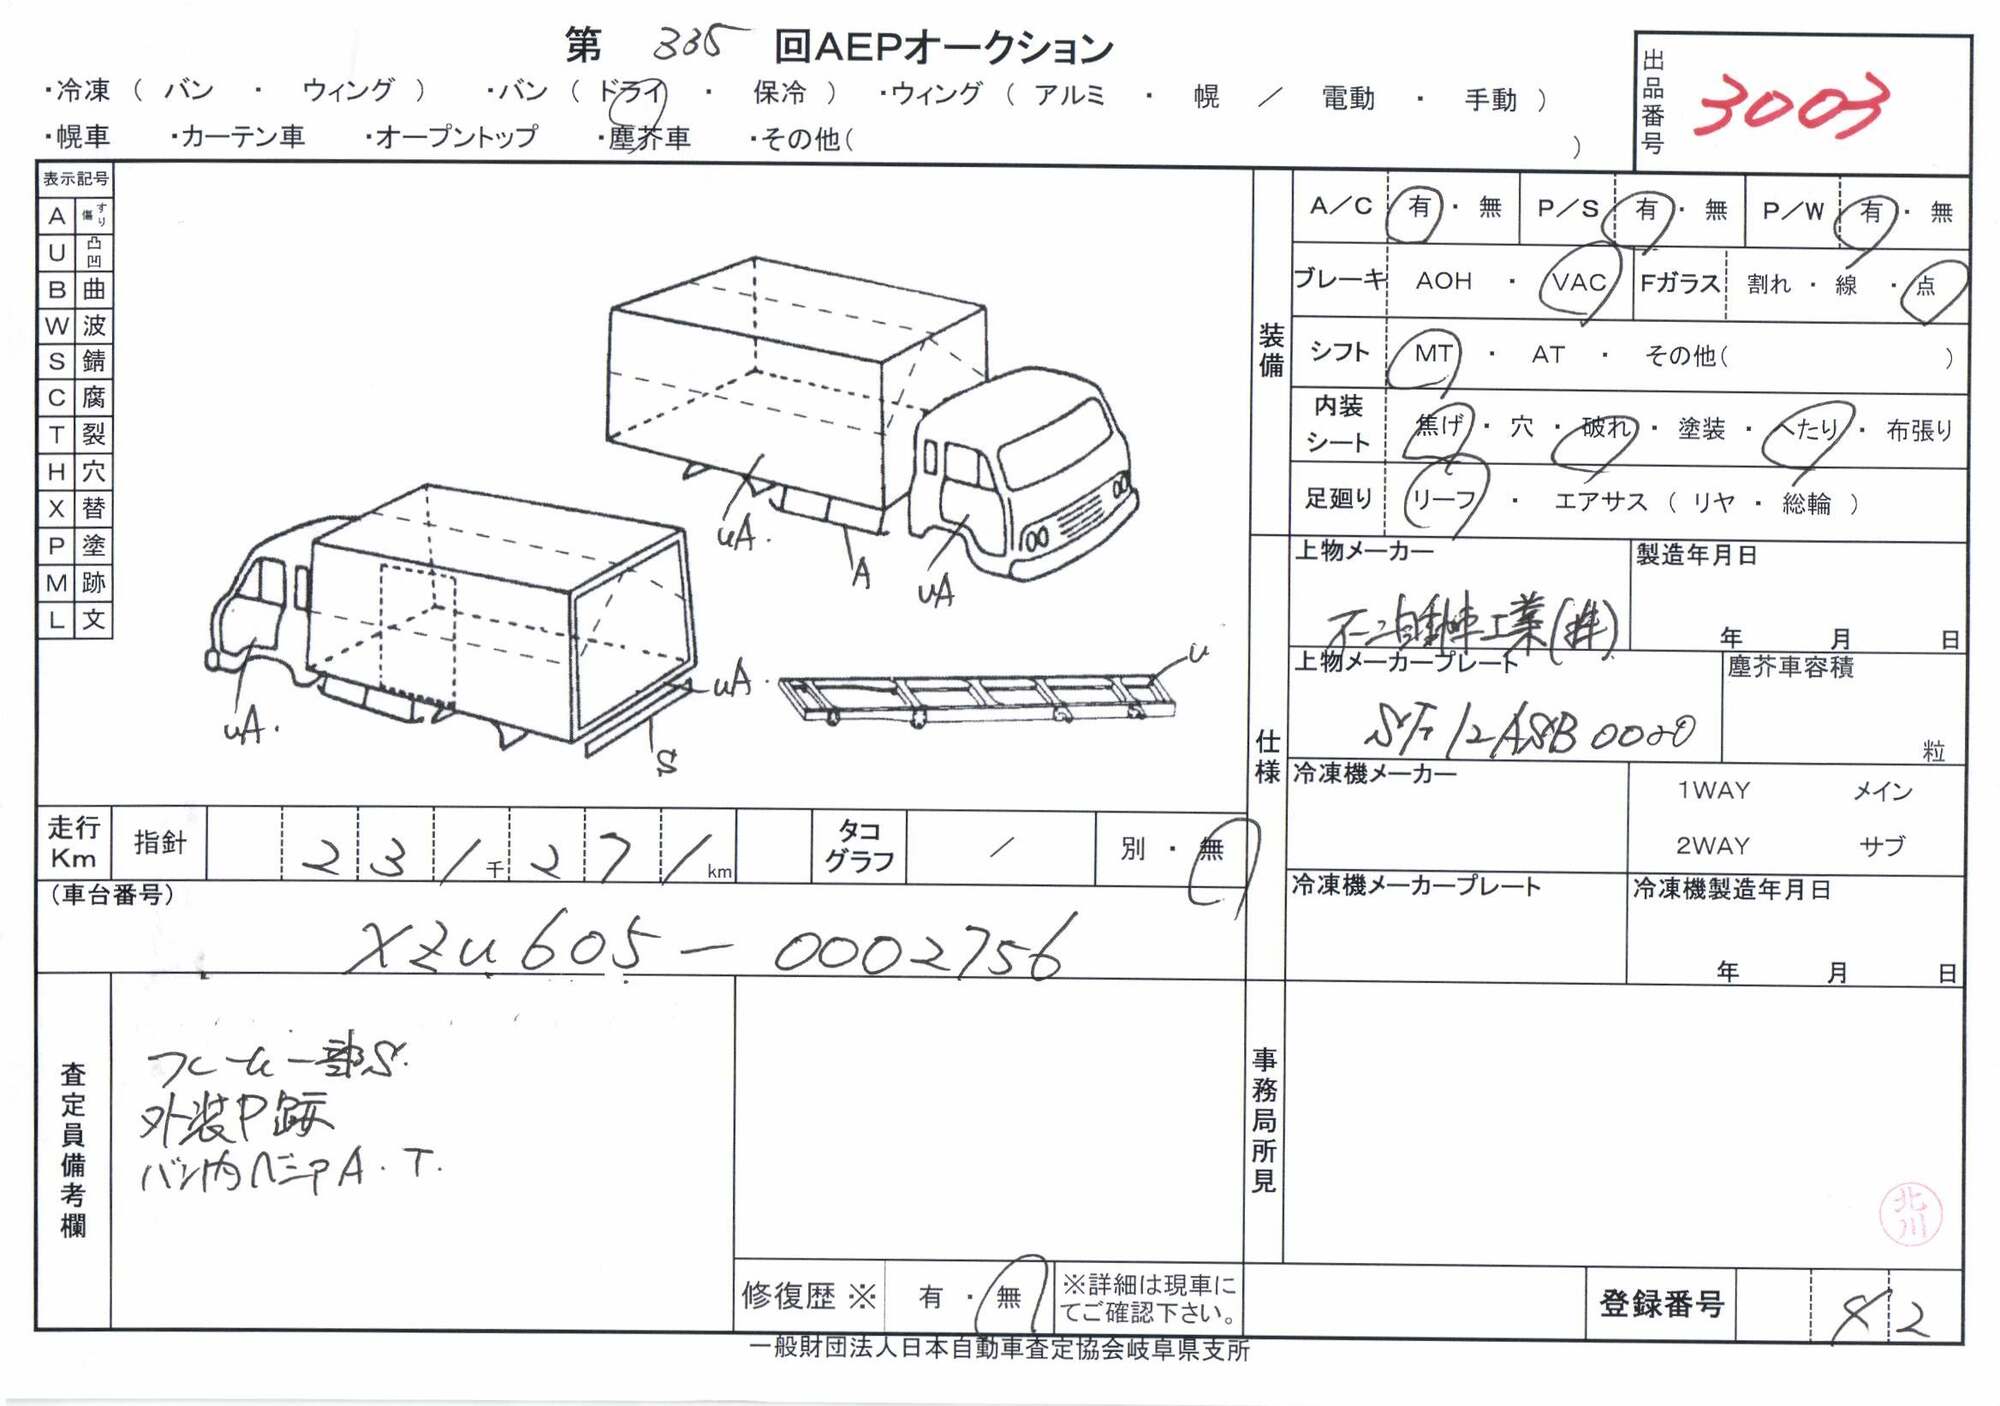 第 335 回AEPオークション
・冷凍 ( バン ・ ウィング ) ・バン ( ドライ ・ 保冷 ) ・ウィング ( アルミ ・ 幌 / 電動 ・ 手動 )
・幌車 ・カーテン車 ・オープントップ ・塵芥車 ・その他( )
出品番号 3003
表示記号
A すり傷
U 凸凹
B 曲
W 波
S 錆
C 腐
T 裂
H 穴
X 替
P 塗
M 跡
L 文
uA.
A
uA
uA.
uA.
S
u
装備
A/C 有 ・ 無 P/S 有 ・ 無 P/W 有 ・ 無
ブレーキ AOH ・ VAC Fガラス 割れ ・ 線 ・ 点
シフト MT ・ AT ・ その他( )
内装シート 焦げ ・ 穴 ・ 破れ ・ 塗装 ・ へたり ・ 布張り
足廻り リーフ ・ エアサス ( リヤ ・ 総輪 )
仕様
上物メーカー 製造年月日
自動車工業(株)
年 月 日
上物メーカープレート 塵芥車容積
12ASB0020
粒
冷凍機メーカー 1WAY メイン
2WAY サブ
冷凍機メーカープレート 冷凍機製造年月日
年 月 日
走行Km 指針 231千271km タコグラフ / 別 ・ 無
(車台番号)
XZU605-0002756
査定員備考欄
フレーム一部S.
外装P跡
バン内ベニヤA.T.
事務局所見
北川
修復歴 ※ 有 ・ 無 ※詳細は現車にてご確認下さい。
登録番号 82
一般財団法人日本自動車査定協会岐阜県支所